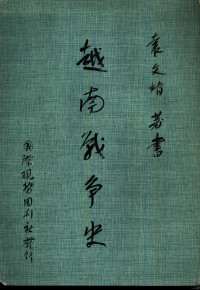 袁文靖 著書
越南戰爭史
國際現勢周刊社發行